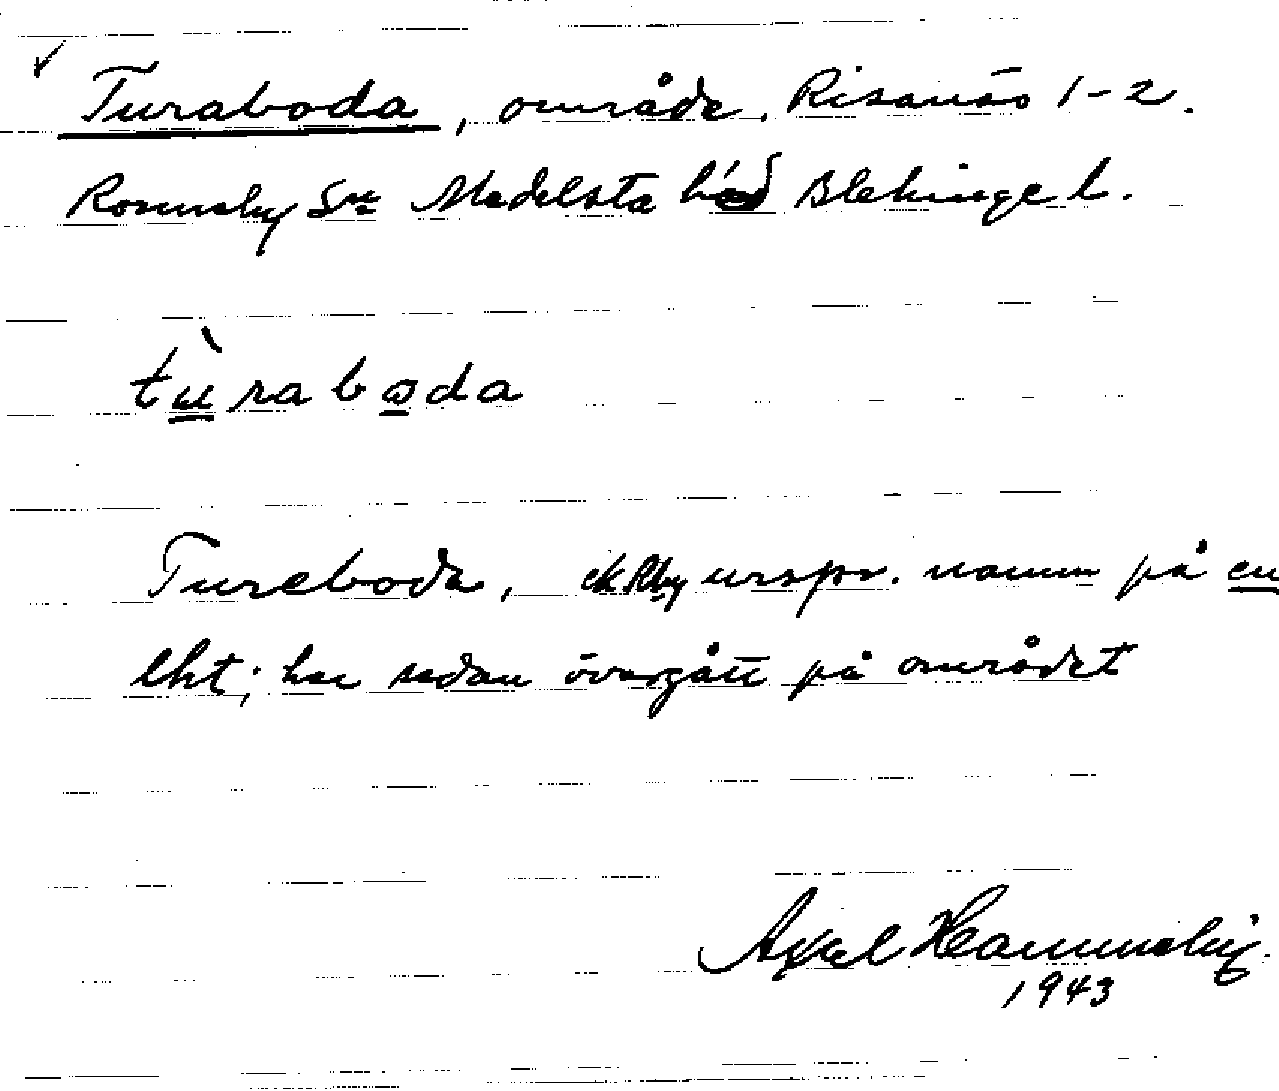 Turaboda, område, Risanäs 1-2.
Ronneby Sn Medelsta hd Blekinge l.
tùraboda
Tureboda, urspr. namn på en
lht; har sedan övergått på området
Axel
1943